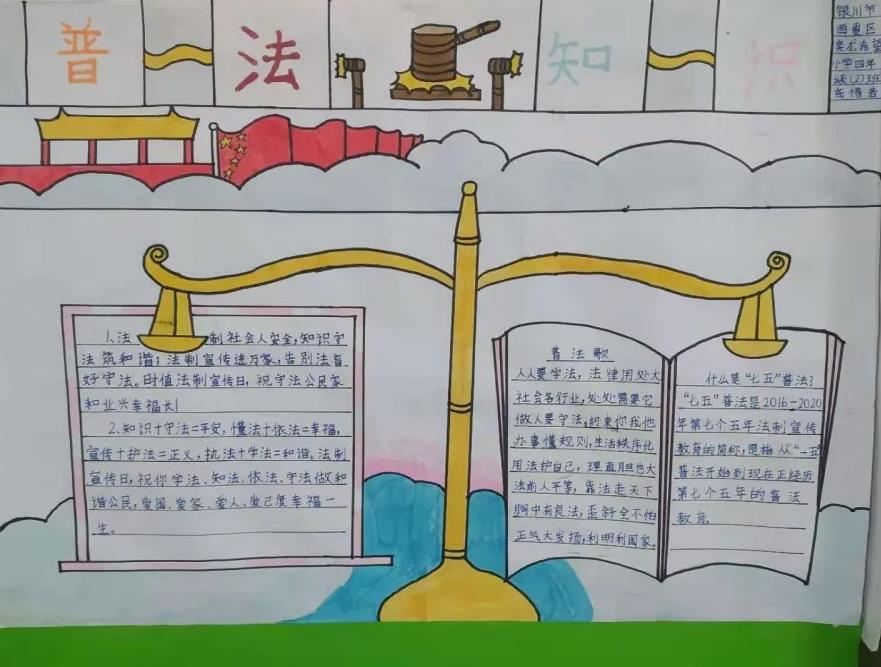 普法知识
银川市
西夏区
小学四年
级(2)班
1、法 制社会人安全,知识守
法筑和谐;法制宣传进万家,告别法盲
好守法。时值法制宣传日,祝守法公民家
和业兴幸福长!
2、知识十守法=平安,懂法十依法=幸福,
宣传十护法=正义,执法十学法=和谐。法制
宣传日,祝你学法、知法、依法、守法做和
谐公民,爱国、爱家、爱人、爱己度幸福一
生。
普法歌
人人要学法,法律用处大
社会各行业,处处需要它
做人要守法,约束你我他
办事懂规则,生活秩序化
用法护自己,理直胆也大
法前人平等,靠法走天下
胸中有良法,歪斜全不怕
正气大发扬,利明利国家。
什么是“七五”普法?
“七五”普法是2016-2020
年第七个五年法制宣传
教育的简称,是指从“一五”
普法开始到现在正经历
第七个五年的普法
教育。